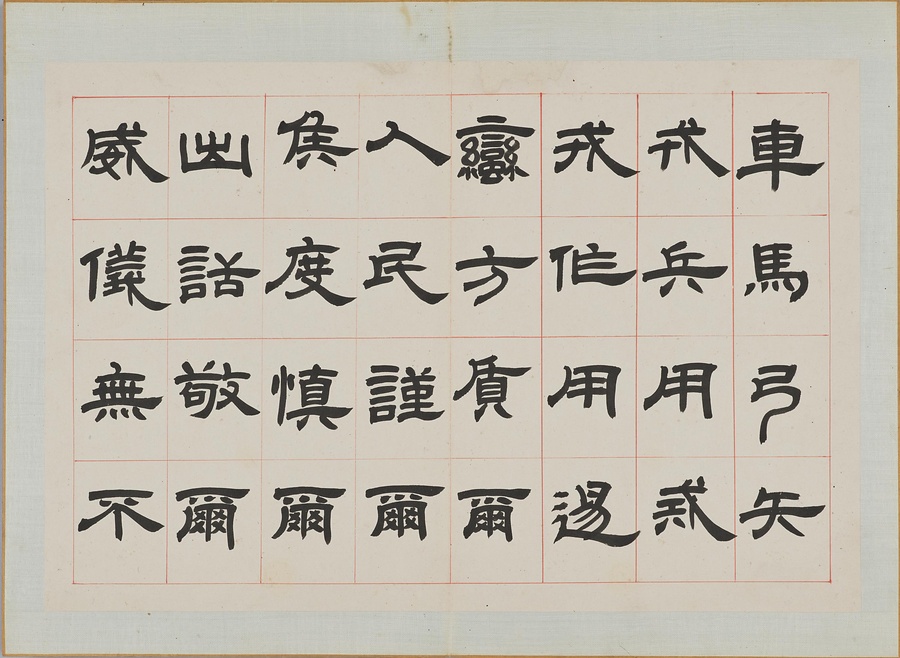 車馬弓矢
戎兵用戒
戎作用逷
蠻方質爾
人民謹爾
侯度慎爾
出話敬爾
威儀無不